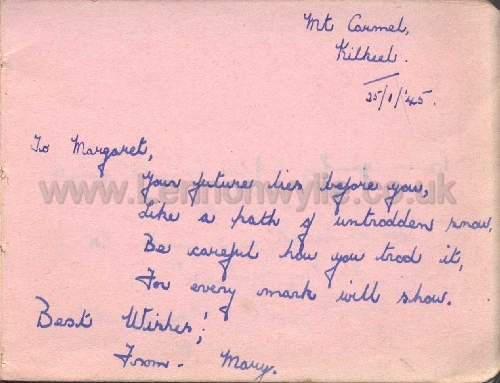 Mt Carmel,
Kilkeel.
25/1/'45.
To Margaret,
Your future lies before you,
Like a path of untrodden snow,
Be careful how you trod it,
For every mark will show.
Best Wishes!
From - Mary.
www.lennonwylie.co.uk